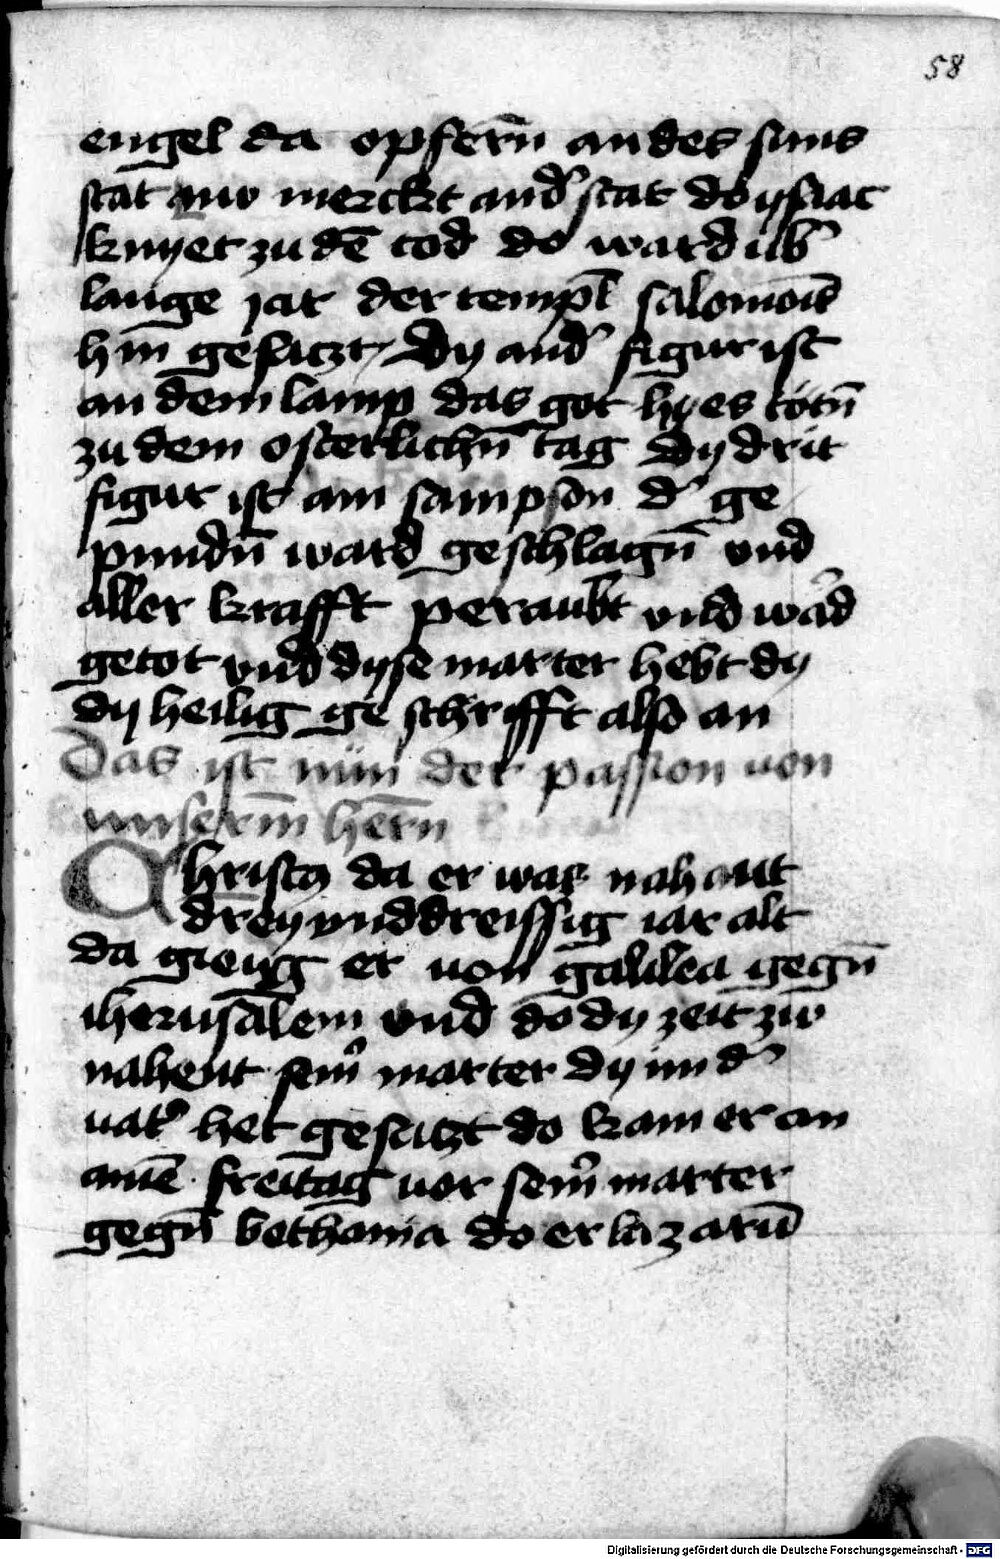 58
engel da opfern̄ an des suns
stat nw merckt an d' stat do ysaac
knyet zu dē tod do ward üb'
lange jar der templ salomoīs
hin gesatzt / Dy and' figur ist
an dem lamp das got hyes tötn̄
zu dem osterlichn̄ tag Dy drit
figur ist am sampson d' ge
pundn̄ ward geschlagn̄ vnd
aller krafft peraubt vnd ward
getot vnd dyse marter hebt dy
dy heilig geschrifft also an
Das ist nün der passion von
vnserm̄ herrn̄
Christ9 da er was nahent
drey vnd dreissig iar alt
da gieng er von galilea gegn̄
iherusalem vnd do dy zeit zw
nahent sein' marter dy im d'
vat' het gesatzt do kam er an
aine freitag vor sein' marter
gegn̄ bethania do er lazarū
Digitalisierung gefördert durch die Deutsche Forschungsgemeinschaft - DFG